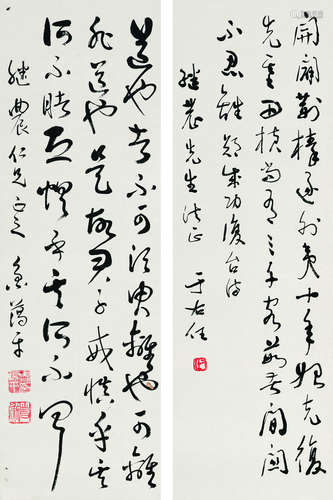 開闢荊榛逐荷夷十年始克復
先基田橫尚有三千客茹苦間關
不忍離 鄭成功復台詩
繼農先生法正
于右任
道也者不可須臾離也可離
非道也是故君子戒慎乎其
所不睹恐懼乎其所不聞
繼農仁兄正之 魯蕩平